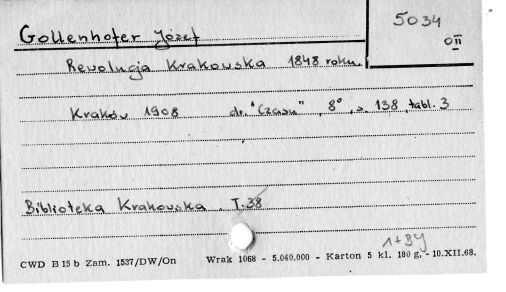 5034
O II
Gollenhofer Józef
Rewolucja Krakowska 1848 roku.
Kraków 1908 dr. "Czasu", 8°, s. 138, tabl. 3
Biblioteka Krakowska. T. 38
CWD B 15 b Zam. 1537/DW/On Wrak 1068 - 5.040.000 - Karton 5 kl. 180 g, - 10.XII.68.